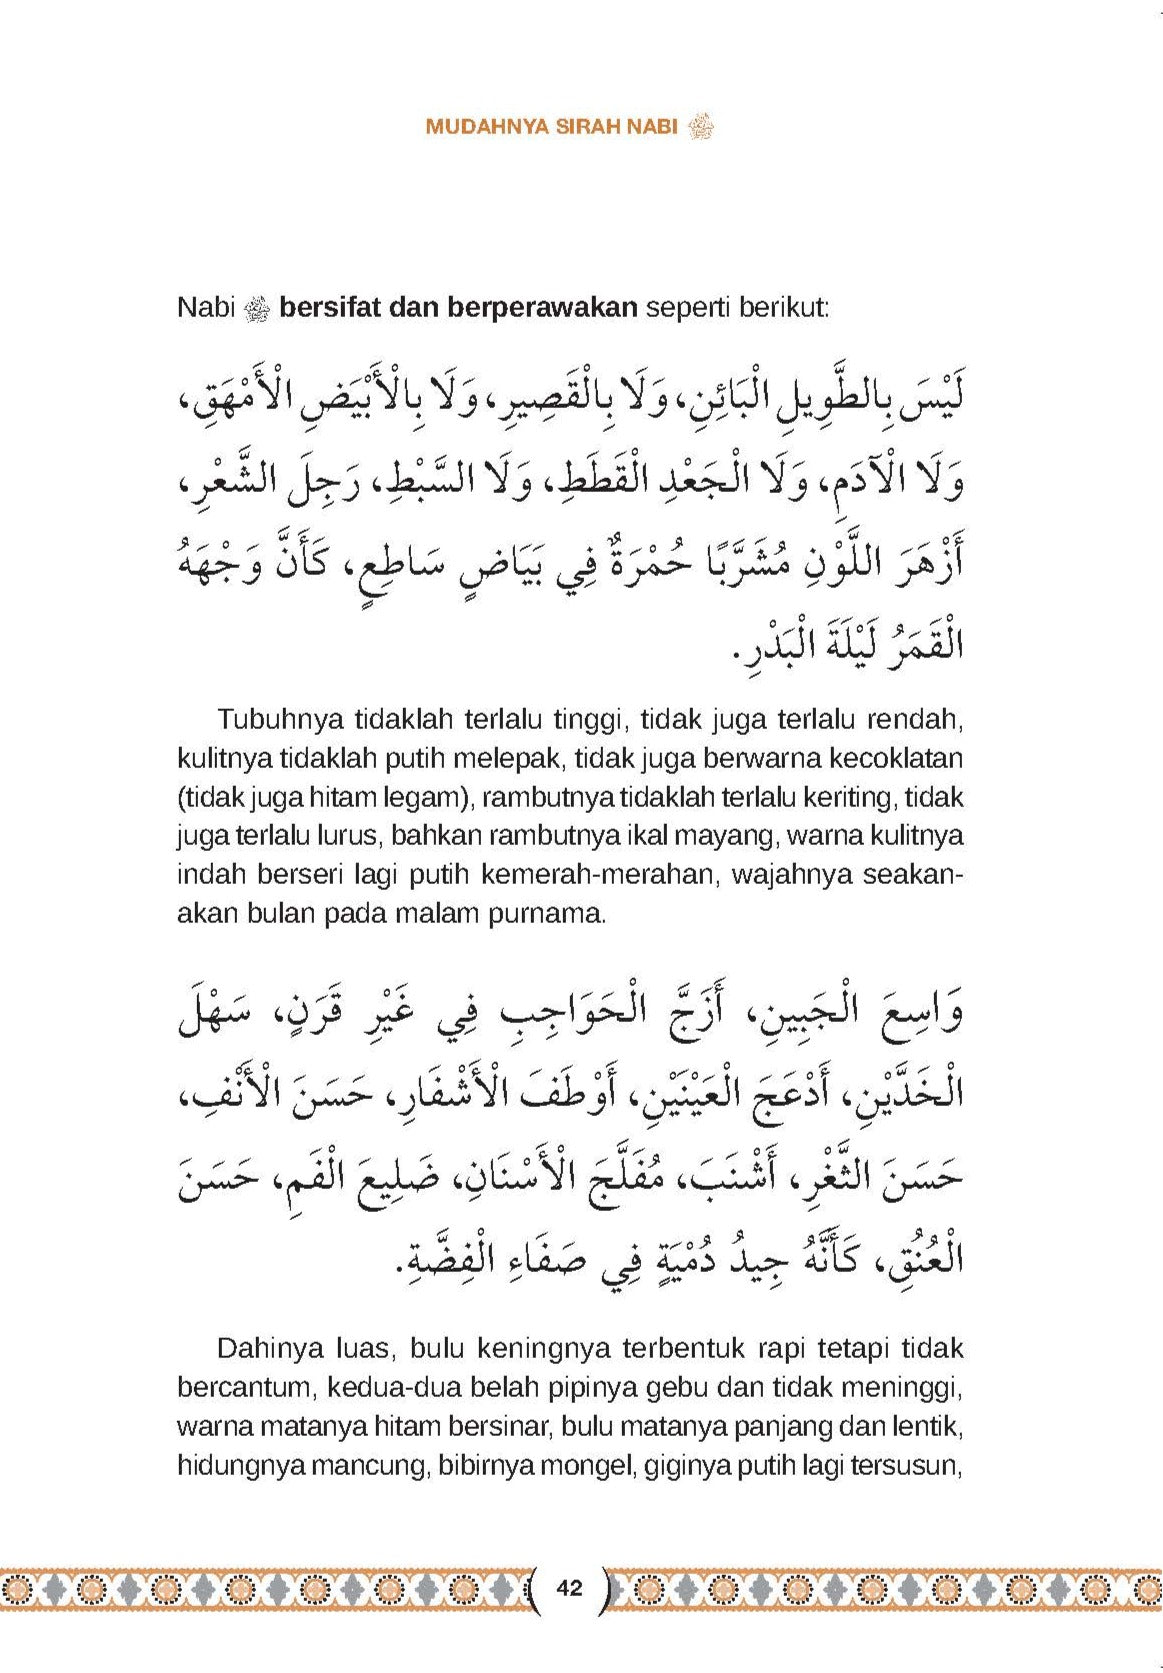 MUDAHNYA SIRAH NABI ﷺ
Nabi ﷺ bersifat dan berperawakan seperti berikut:
لَيْسَ بِالطَّوِيلِ الْبَائِنِ، وَلَا بِالْقَصِيرِ، وَلَا بِالْأَبْيَضِ الْأَمْهَقِ،
وَلَا الْآدَمِ، وَلَا الْجَعْدِ الْقَطَطِ، وَلَا السَّبْطِ، رَجِلَ الشَّعْرِ،
أَزْهَرَ اللَّوْنِ مُشَرَّبًا حُمْرَةٌ فِي بَيَاضٍ سَاطِعٍ، كَأَنَّ وَجْهَهُ
الْقَمَرُ لَيْلَةَ الْبَدْرِ.
Tubuhnya tidaklah terlalu tinggi, tidak juga terlalu rendah,
kulitnya tidaklah putih melepak, tidak juga berwarna kecoklatan
(tidak juga hitam legam), rambutnya tidaklah terlalu keriting, tidak
juga terlalu lurus, bahkan rambutnya ikal mayang, warna kulitnya
indah berseri lagi putih kemerah-merahan, wajahnya seakan-
akan bulan pada malam purnama.
وَاسِعَ الْجَبِينِ، أَزَجَّ الْحَوَاجِبِ فِي غَيْرِ قَرَنٍ، سَهْلَ
الْخَدَّيْنِ، أَدْعَجَ الْعَيْنَيْنِ، أَوْطَفَ الْأَشْفَارِ، حَسَنَ الْأَنْفِ،
حَسَنَ الثَّغْرِ، أَشْنَبَ، مُفَلَّجَ الْأَسْنَانِ، ضَلِيعَ الْفَمِ، حَسَنَ
الْعُنُقِ، كَأَنَّهُ جِيدُ دُمْيَةٍ فِي صَفَاءِ الْفِضَّةِ.
Dahinya luas, bulu keningnya terbentuk rapi tetapi tidak
bercantum, kedua-dua belah pipinya gebu dan tidak meninggi,
warna matanya hitam bersinar, bulu matanya panjang dan lentik,
hidungnya mancung, bibirnya mongel, giginya putih lagi tersusun,
42